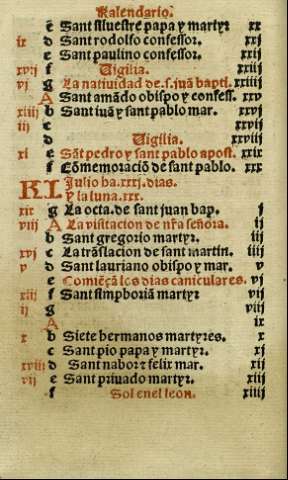 Kalendario.
e Sant silvestre papa y martyr xx
ix d Sant rodolfo confessor. xxj
e Sant paulino confessor. xxij
xvij f Vigilia. xxiij
vj g La natividad de.s.juã bapti. xxiiij
A Sant amãdo obispo y confess. xxv
xiiij b Sant iuã y sant pablo mar. xxvj
iij c xxvij
d Vigilia. xxviij
xj e Sãt pedro y sant pablo apost. xxix
f Cõmemoraciõ de sant pablo. xxx
KL Julio ha.xxxj.dias.
y la luna.xxx.
xix g La octa.de sant juan bap. j
viij A La visitacion de nr̃a señora. ij
b Sant gregorio martyr. iij
xvj c La trãslacion de sant martin. iiij
v d Sant lauriano obispo y mar. v
e Comiẽçã los dias caniculares. vj
xiij f Sant simphoriã martyr vij
ij g viij
A ix
x b Siete hermanos martyres. x
c Sant pio papa y martyr. xj
xviij d Sant nabor ⁊ felix mar. xij
vij e Sant privado martyr. xiij
f Sol enel leon. xiiij